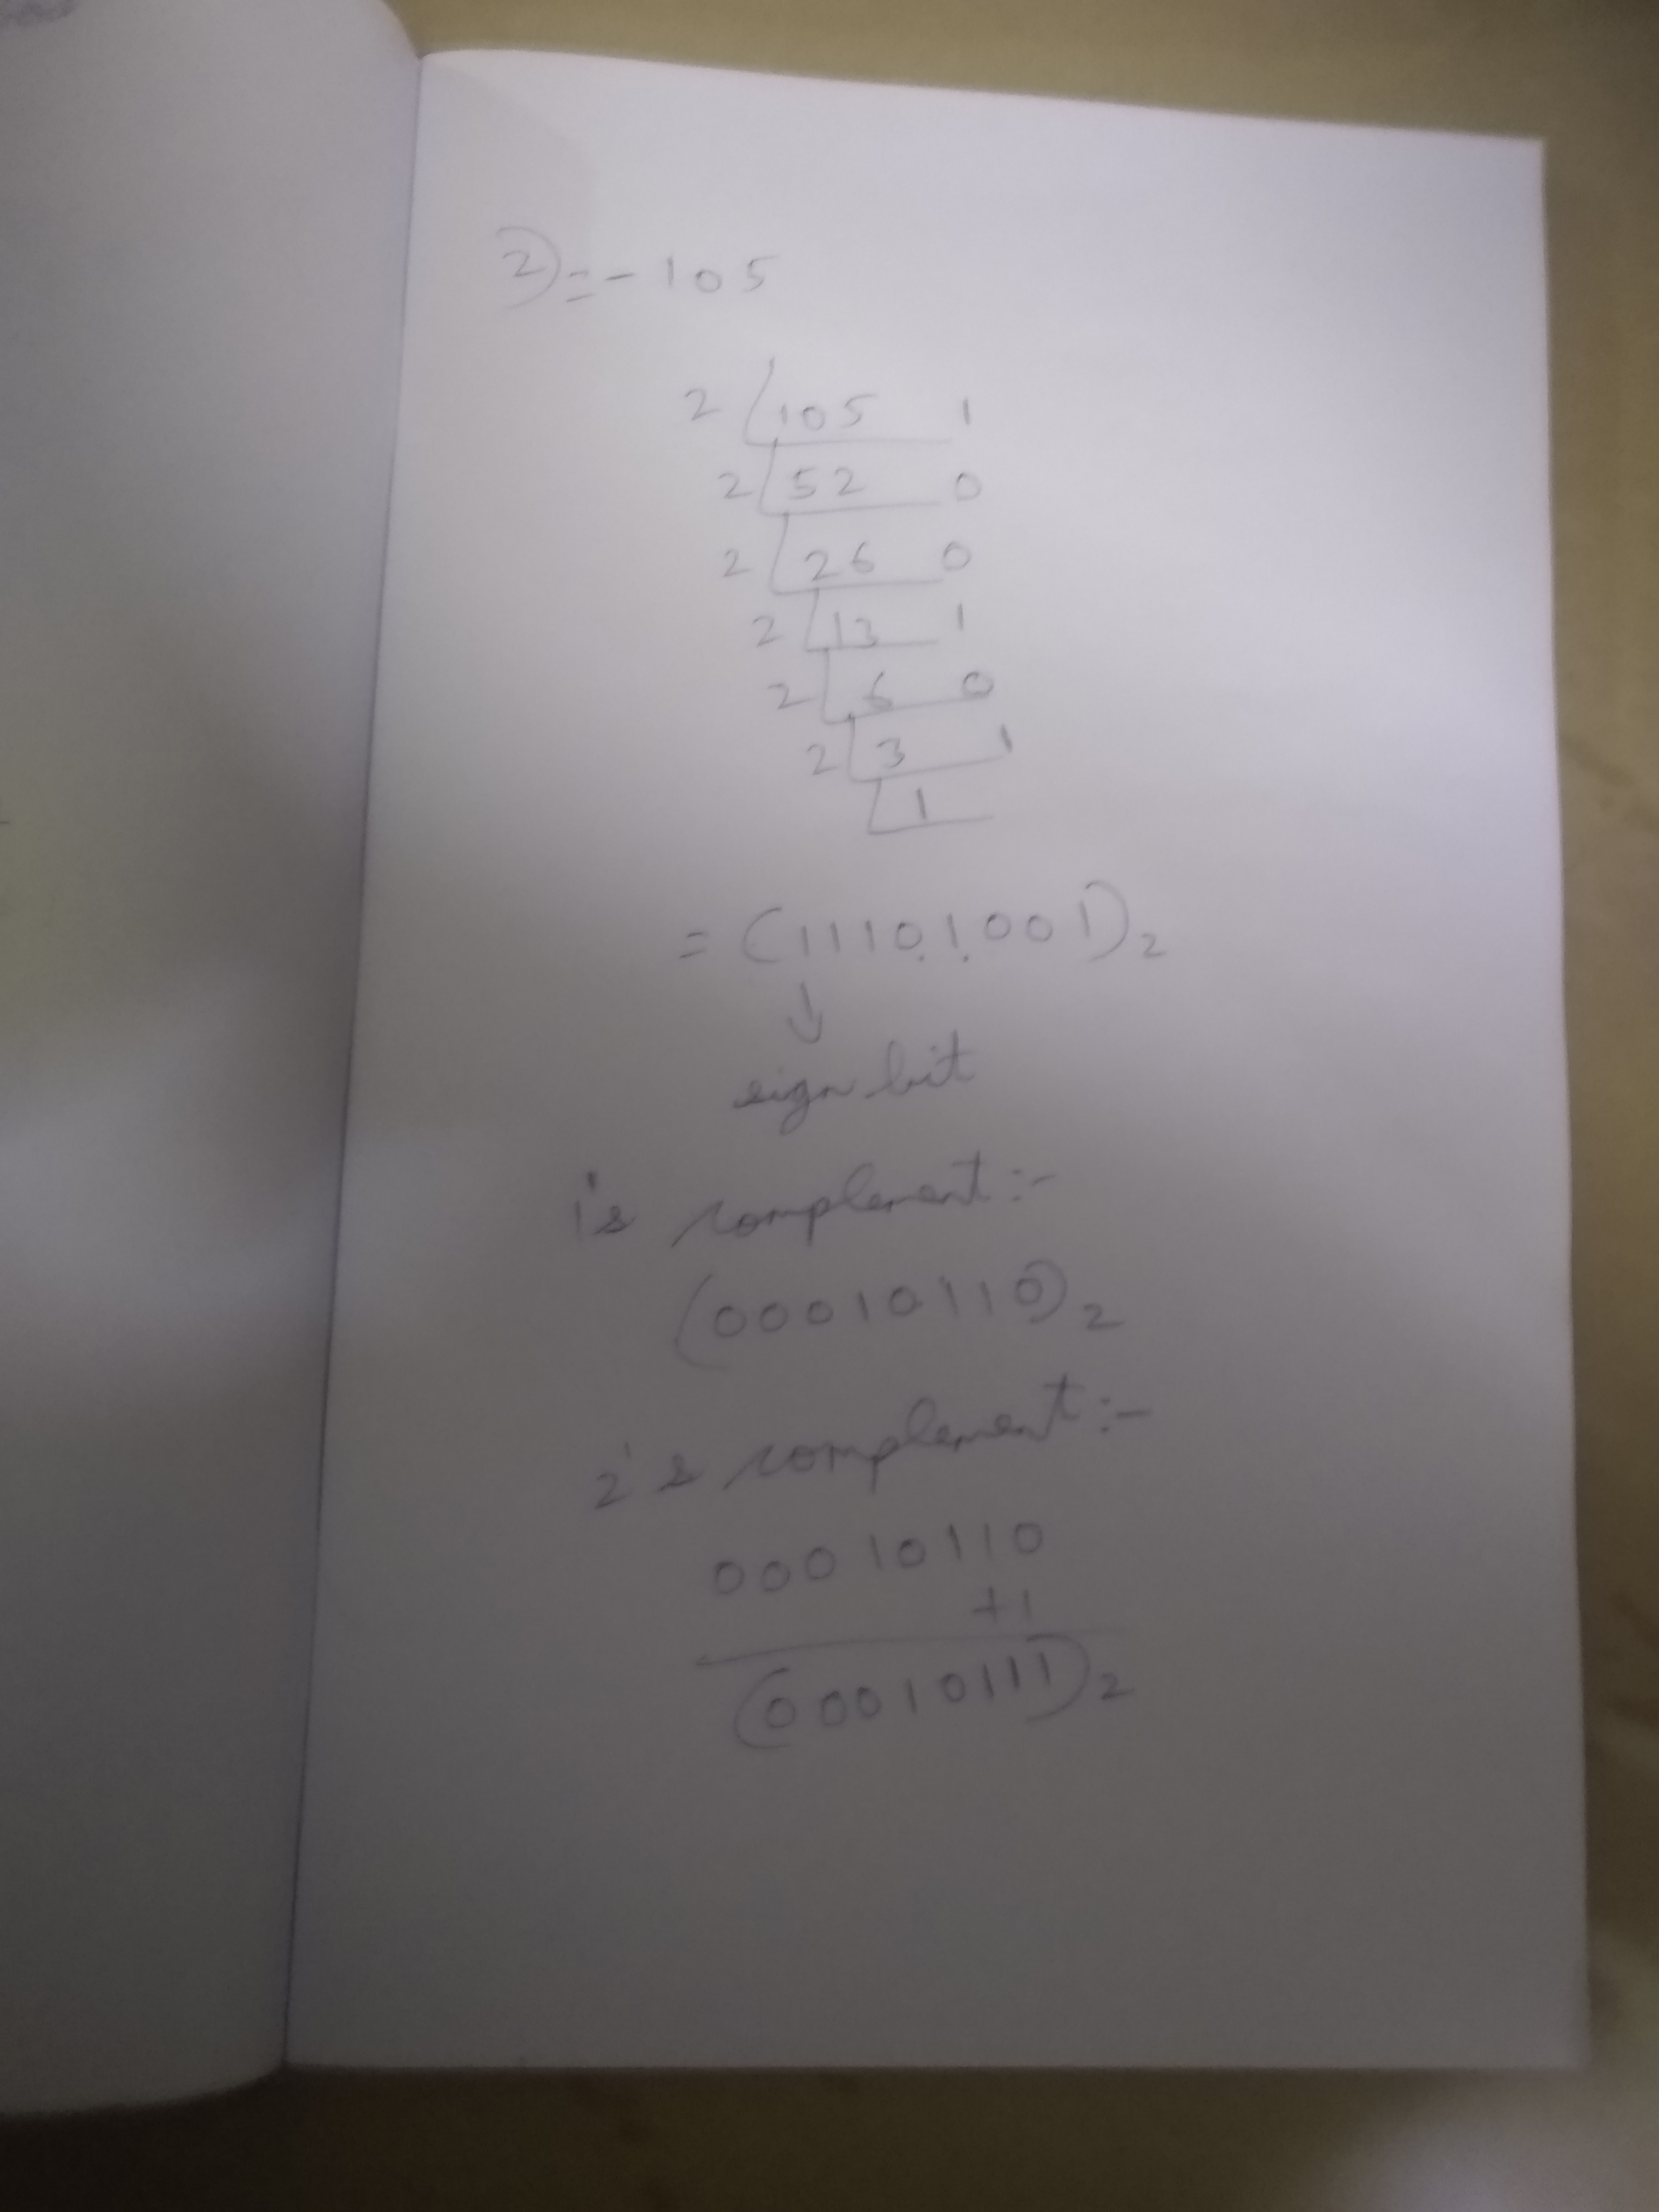 2) = - 105
2 105 1
2 52 0
2 26 0
2 13 1
2 6 0
2 3 1
1
= (11101001)2
↓
sign bit
1's complement :-
(00010110)2
2's complement :-
00010110
+1
(00010111)2